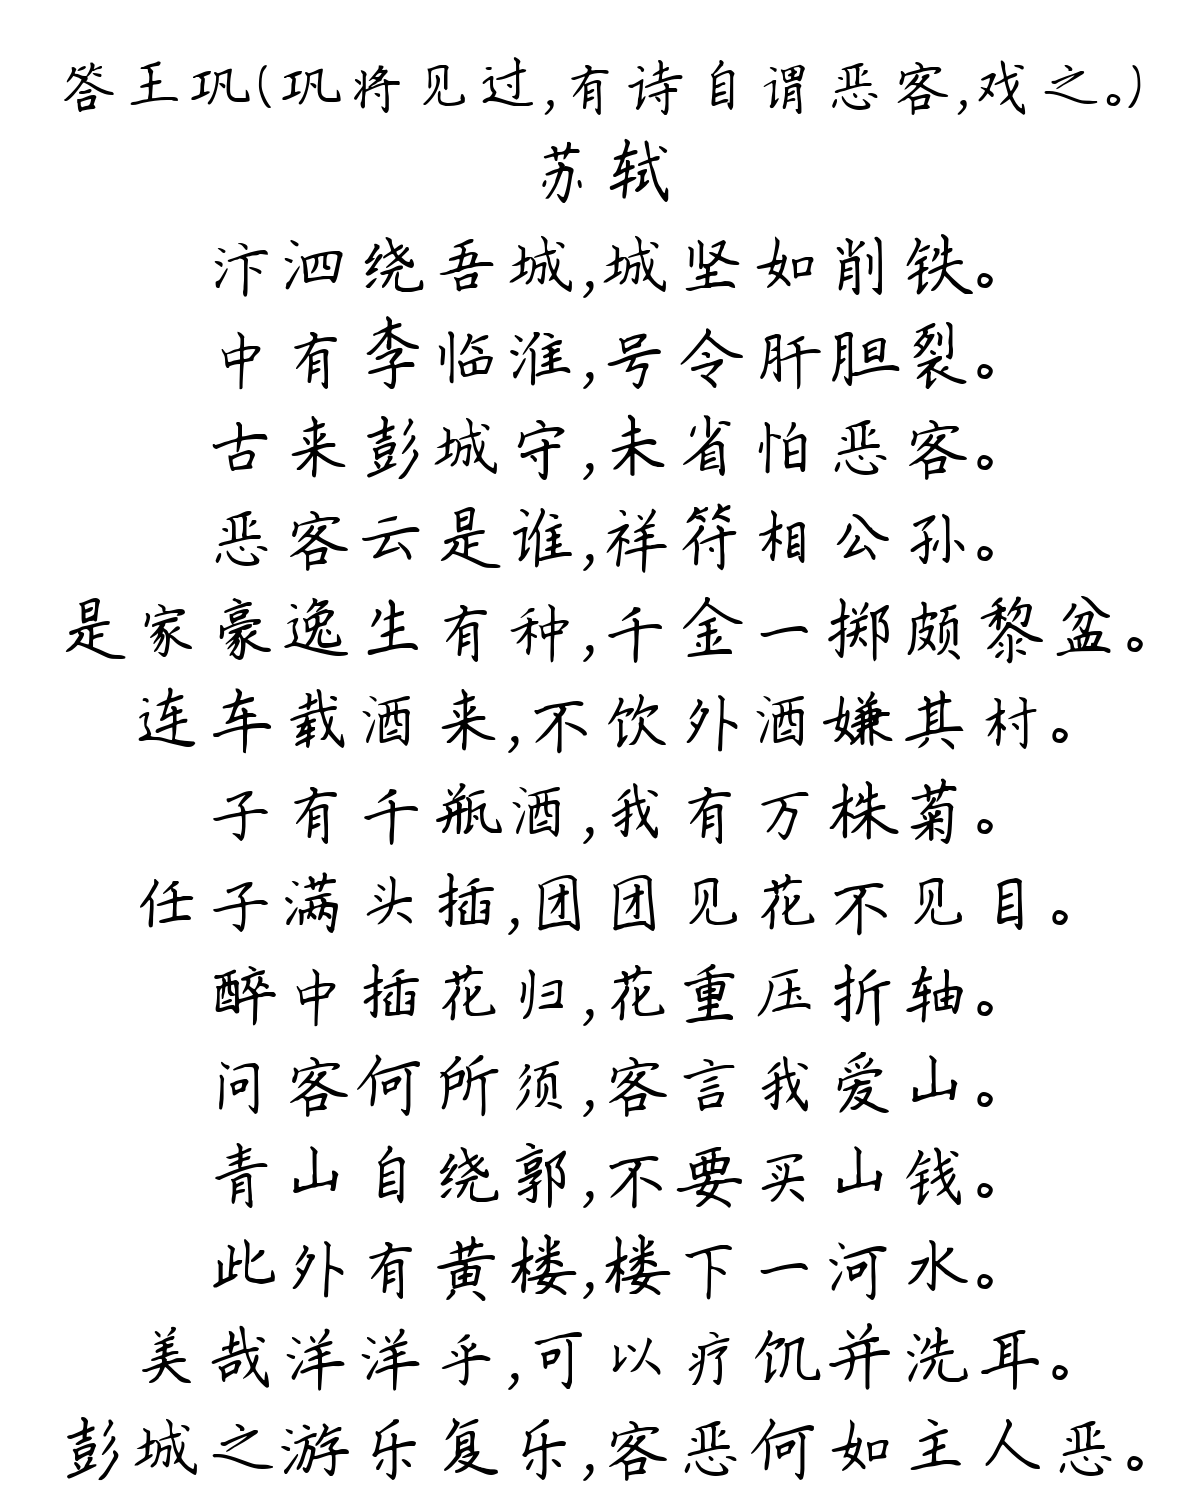 答王巩(巩将见过,有诗自谓恶客,戏之。)
苏轼
汴泗绕吾城,城坚如削铁。
中有李临淮,号令肝胆裂。
古来彭城守,未省怕恶客。
恶客云是谁,祥符相公孙。
是家豪逸生有种,千金一掷颇黎盆。
连车载酒来,不饮外酒嫌其村。
子有千瓶酒,我有万株菊。
任子满头插,团团见花不见目。
醉中插花归,花重压折轴。
问客何所须,客言我爱山。
青山自绕郭,不要买山钱。
此外有黄楼,楼下一河水。
美哉洋洋乎,可以疗饥并洗耳。
彭城之游乐复乐,客恶何如主人恶。